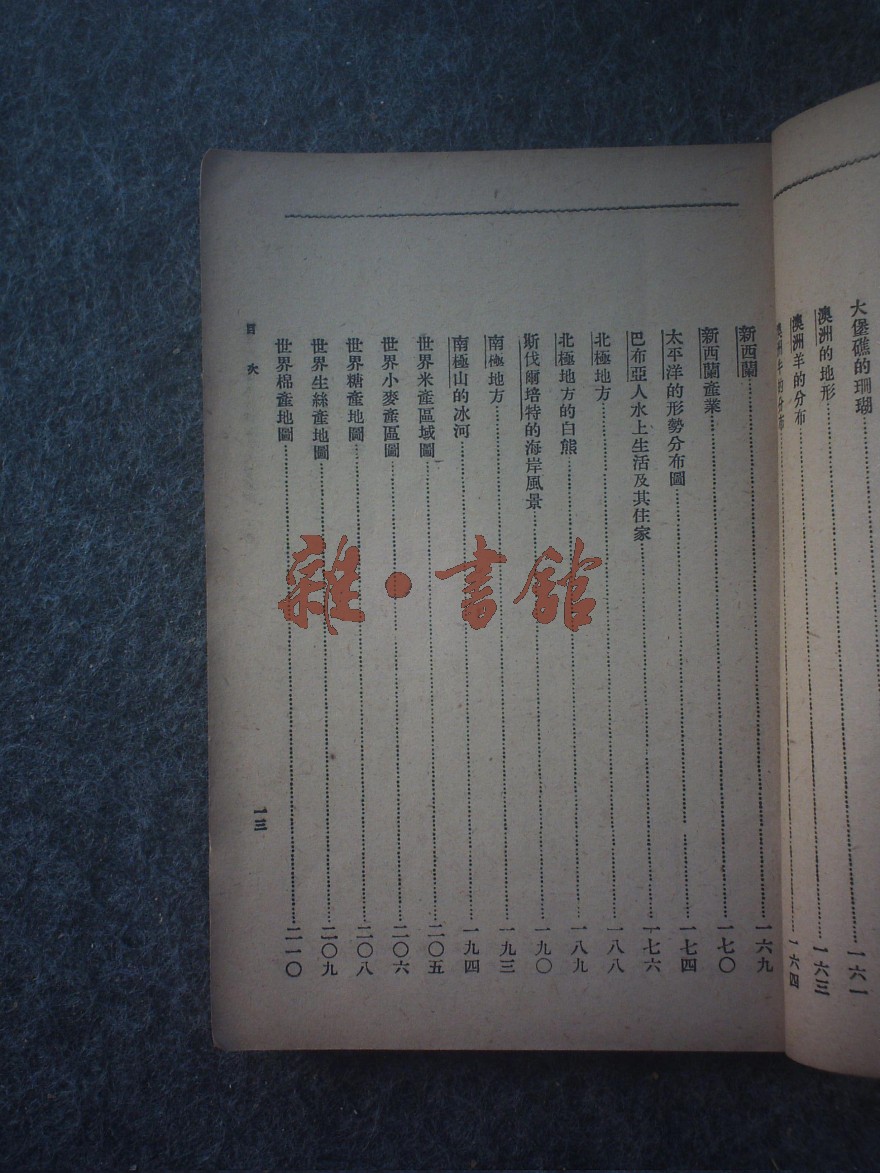 大堡礁的珊瑚……一六一
澳洲的地形……一六三
澳洲羊的分布……一六四
澳洲牛的分布
新西蘭……一六九
新西蘭產業……一七〇
太平洋的形勢分布圖……一七四
巴布亞人水上生活及其住家……一七六
北極地方……一八八
北極地方的白熊……一八九
斯伐爾培特的海岸風景……一九〇
南極地方……一九三
南極山的冰河……一九四
世界米產區域圖……二〇五
世界小麥產區圖……二〇六
世界糖產地圖……二〇八
世界生絲產地圖……二〇九
世界棉產地圖……二一〇
目次
一三
雜·書館